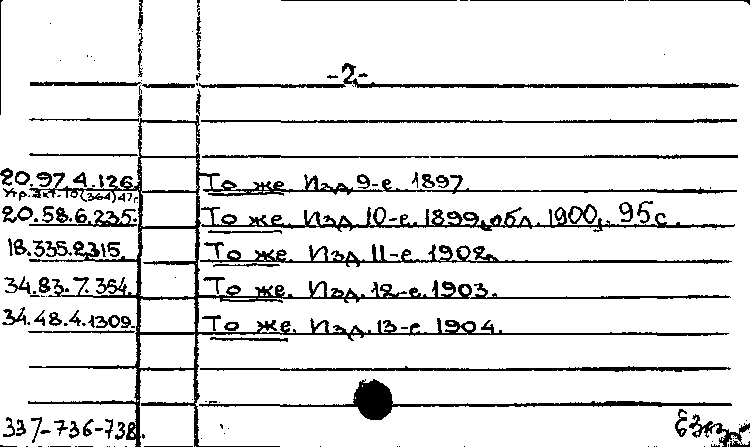 -2-.
20.97.4.126. То же. Изд. 9-е. 1897.
20.58.6.235. То же. Изд. 10-е. 1899, обл. 1900,. 95с.
18.335.2.315. То же. Изд. 11-е 1902.
34.83.7.354. То же. Изд. 12-е. 1903.
34.48.4.1309. То же. Изд. 13-е 1904.
337-736-738.